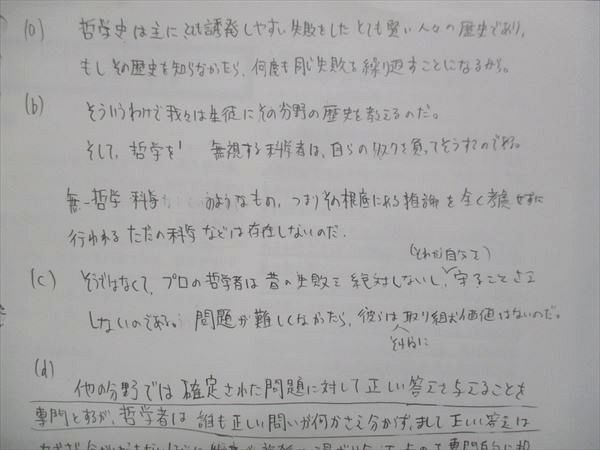 (a) 哲学史は主にとても誘発しやすい失敗をしたとても賢い人々の歴史であり,
もしその歴史を知らなかったら, 何度も同じ失敗を繰り返すことになるから。
(b) そういうわけで我々は生徒にその分野の歴史を教えるのだ。
そして, 哲学を 無視する科学者は, 自らのリスクを負ってそうするのである。
無-哲学 科学 のようなもの, つまりその根底にある推論を全く考慮せずに
行われるただの科学などは存在しないのだ.
(それが自分で)
(c) そうではなくて, プロの哲学者は昔の失敗を絶対しないし, 守ること
しないのである。問題が難しくなかったら, 彼らは取り組む価値はないのだ。
(d)
他の分野では確定された問題に対して正しい答えを与えることを
専門とするが, 哲学者は誰も正しい問いが何かさえ分からず, まして正しい答えは